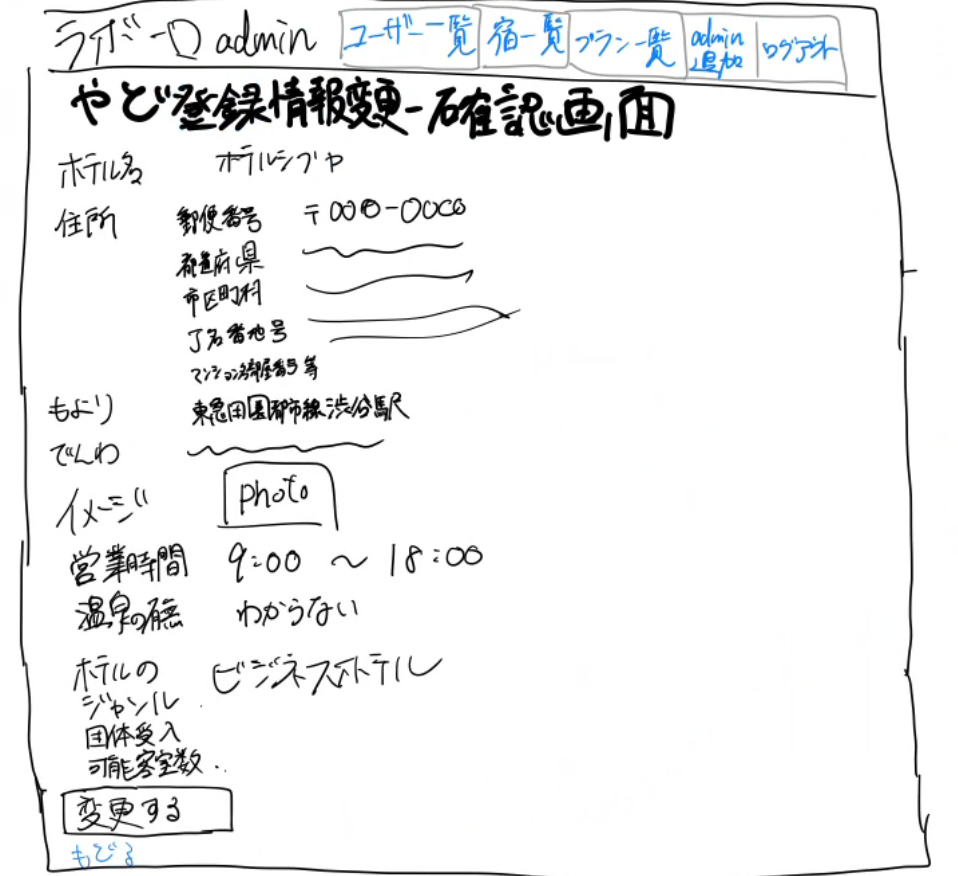 ライボーロ admin ユーザー一覧 宿一覧 プラン一覧 admin追加 ログアウト
やど登録情報変更-確認画面
ホテル名 ホテルシブヤ
住所 郵便番号 〒000-0000
都道府県
市区町村
丁名番地号
マンション名部屋番号等
もより 東急田園都市線渋谷駅
でんわ
イメージ photo
営業時間 9:00 〜 18:00
温泉の有無 わからない
ホテルの ビジネスホテル
ジャンル
団体受入
可能客室数
変更する
もどる